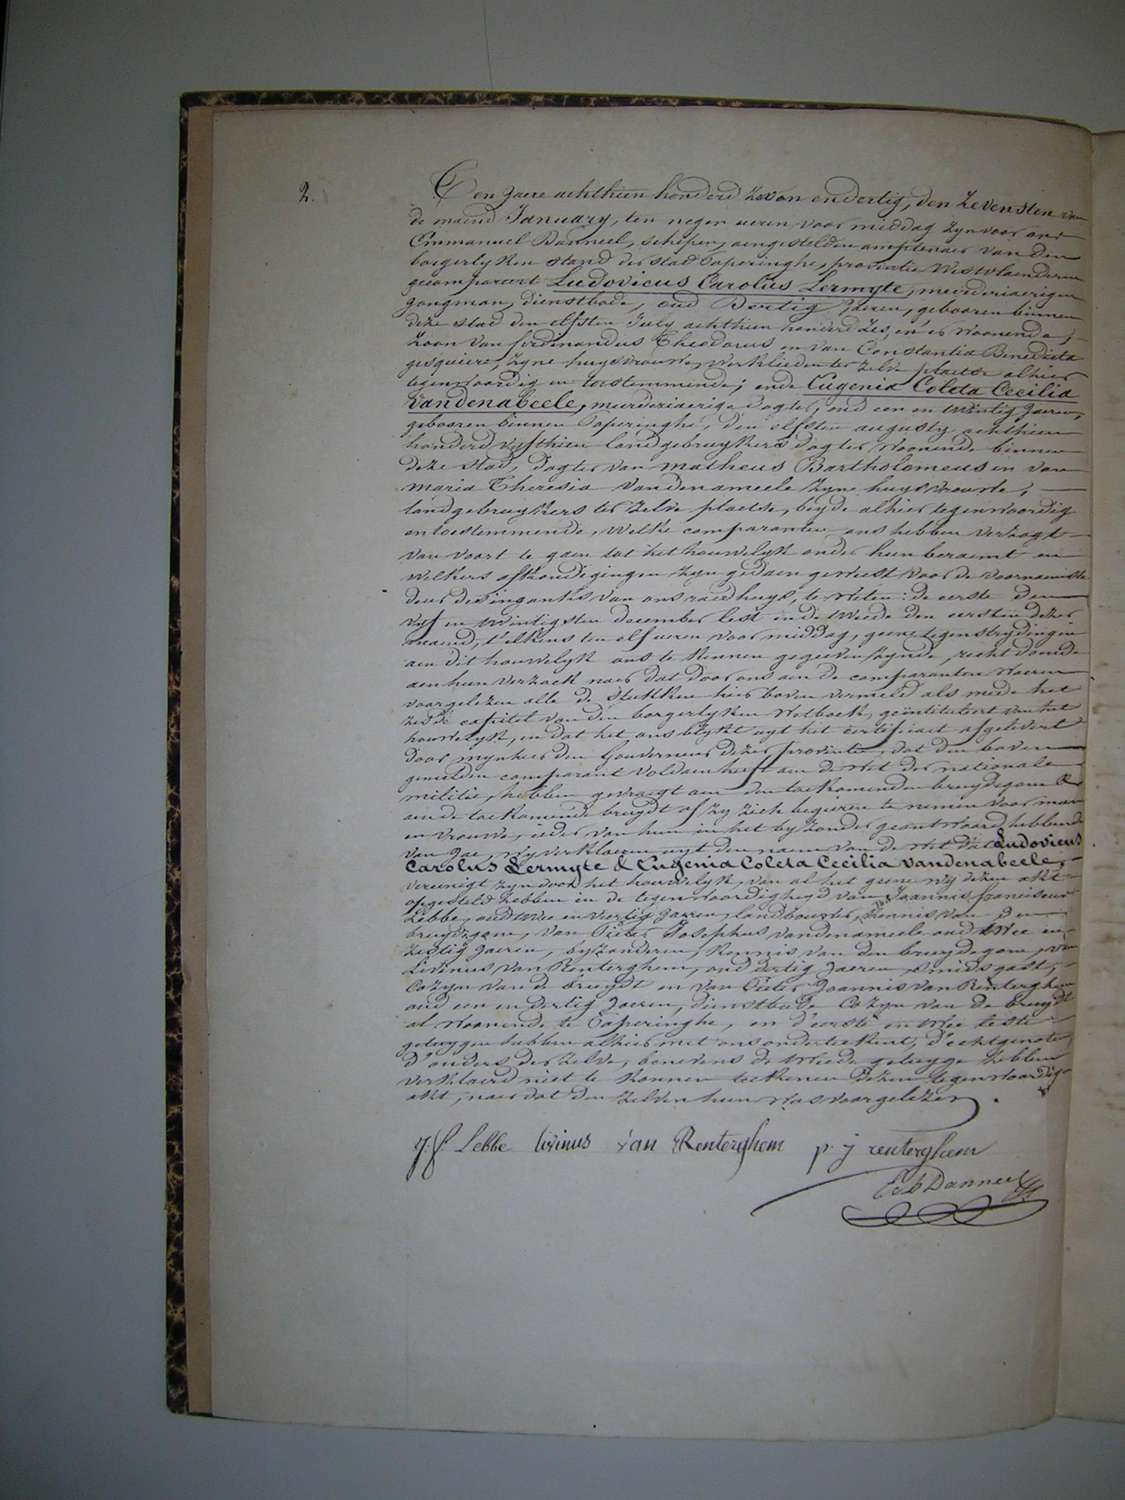 2.
Den Jaere achthien honderd zeven en dertig, den zevensten van
de maend January, ten negen ueren voor middag zyn voor ons
Emmanuel Banneel, schepen, aengestelden amptenaer van den
borgerlyken stand der stad Poperinghe, provintie Westvlaenderen
gecompareert Ludovicus Carolus Lermyte, meerderjaerigen
jongman, dienstbode, oud Dertig Jaeren, gebooren binnen
deze stad den elfsten July achthien honderd zes, en er woonende,
zoon van Ferdinandus Theodorus en van Constantia Benedicta
gesquiere, zyne huysvrouwe, werklieden ter zelve plaetse alhier
tegenwoordig en toestemmende; ende Eugenia Coleta Cecilia
Vandenabeele, meerderjaerige dogter, oud een en twintig Jaeren,
gebooren binnen Poperinghe, den elfsten augusty achthien
honderd vyfthien landgebruykers dogter, woonende binnen
deze stad, dogter van Matheus Bartholomeus en van
Maria Theresia Vandenameele zyne huysvrouwe,
landgebruykers ter zelve plaetse, beyde alhier tegenwoordig
en toestemmende, welke comparanten ons hebben verzogt
van voort te gaen tot het houwelyk onder hun beraemt en
welkers afkondigingen zyn gedaen geweest voor de voornaemste
deur des ingankx van ons raedhuys, te weten: de eerste den
vyf en twintigsten december lest en de tweede den eersten dezer
maend, t'elkens ten elf ueren voor middag, geene tegenstrydingen
aen dit houwelyk ons te kennen gegeeven zynde, recht doende
aen hun verzoek naer dat door ons aen de comparanten waeren
voorgelezen alle de stukken hier boven vermeld als mede het
zesde capitel van den borgerlyken Wetboek, geïntituleert van het
houwelyk, en dat het ons blykt uyt het certificaet afgelevert
door mynheer den Gouverneur dezer provintie, dat den boven
gemelden comparant voldaen heeft aen de wet der nationale
militie, hebben gevraegt aen den toekomenden bruydegom &
aen de toekomende bruydt of zy zich begeeren te nemen voor man
en vrouwe, ieder van hun in het byzonder geantwoord hebbende
van Jae, wy verklaeren uyt den naem van de wet dat Ludovicus
Carolus Lermyte & Eugenia Coleta Cecilia Vandenabeele,
vereenigt zyn door het houwelyk, van al het geene wy dezen akt
opgesteld hebben in de tegenwoordigheyd van Joannes franciscus
Lebbe, oud twee en veertig Jaeren, landbouwer, kennis van den
bruydegom, van Pieter Josephus Vandenameele oud twee en
zestig Jaeren, byzonderen, kennis van den bruydegom, van
Livinus Van Renterghem, oud dertig Jaeren, smids gast,
Cozyn van de bruydt en van Pieter Joannis van Renterghem
oud een en dertig Jaeren, dienstbode Cozyn van de bruydt
al woonende te Poperinghe, en d'eerste en twee leste
getuygen hebben alhier met ons onderteekent, d'echtgenoten,
d'ouders der zelve, benevens de tweede getuyge hebben
verklaerd niet te konnen teekenen dezen tegenwoordigen
akt, naer dat den zelven hun was voorgelezen.
j. f. Lebbe livinus van Renterghem p. j renterghem
Banneel